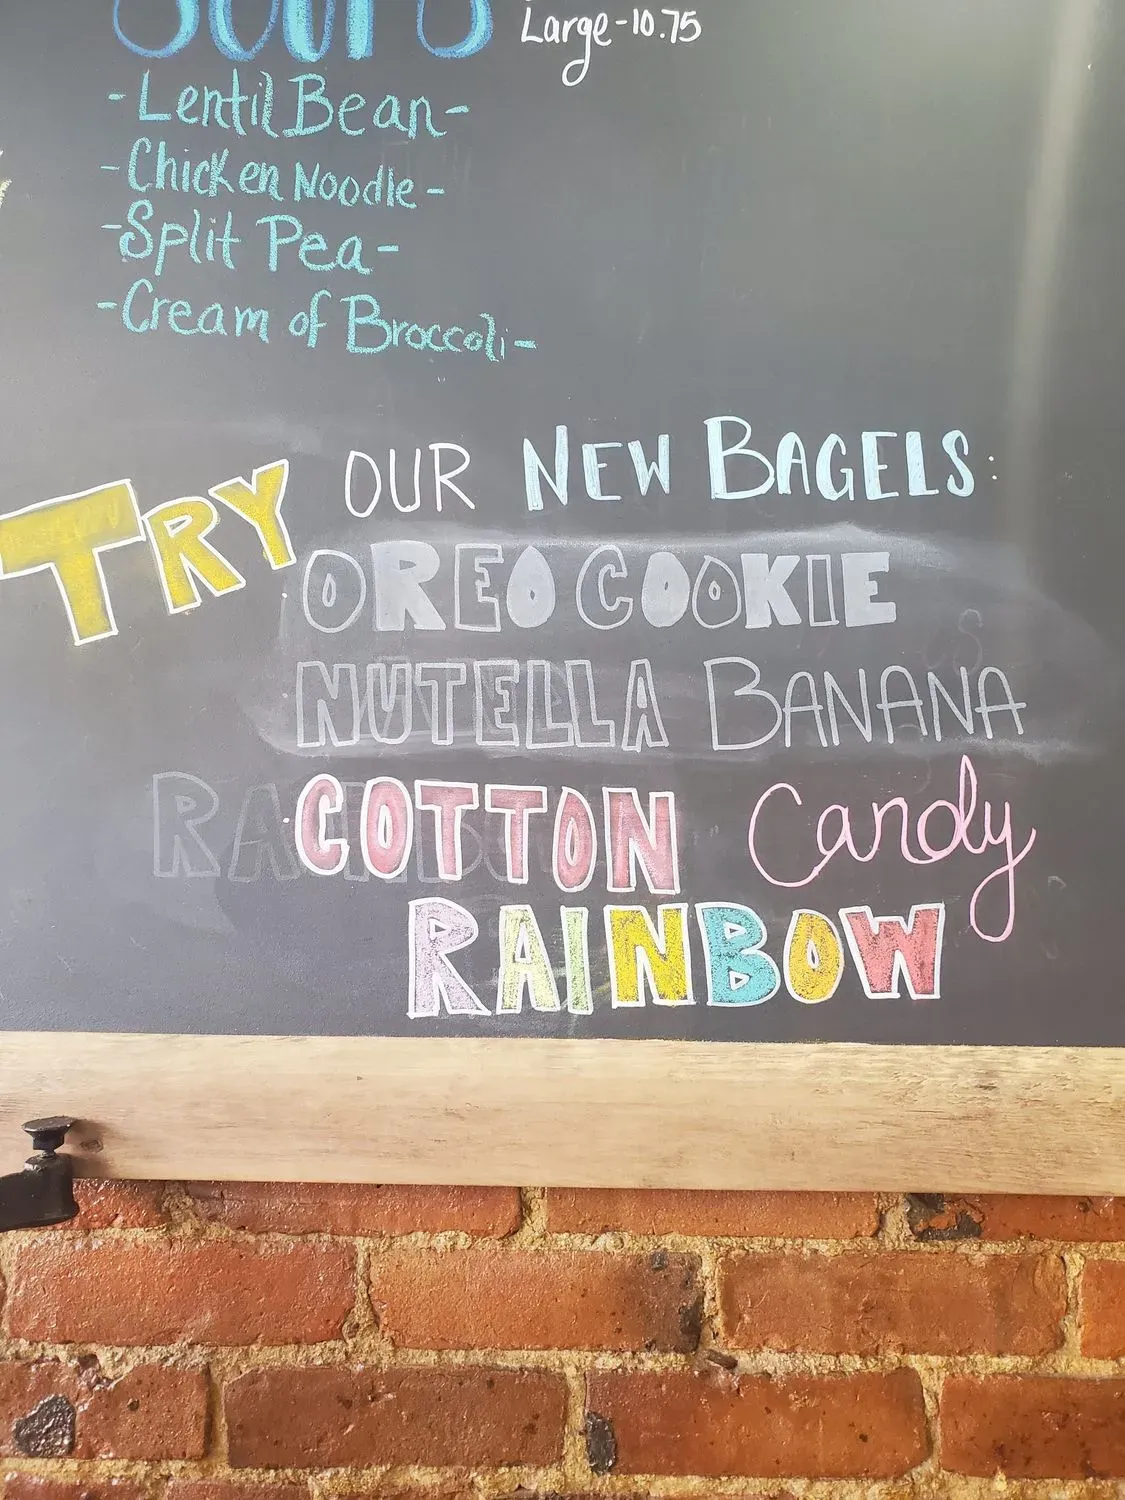 SOUPS
Large-10.75
-Lentil Bean-
-Chicken Noodle-
-Split Pea-
-Cream of Broccoli-
TRY OUR NEW BAGELS:
OREO COOKIE
NUTELLA BANANA
COTTON Candy
RAINBOW